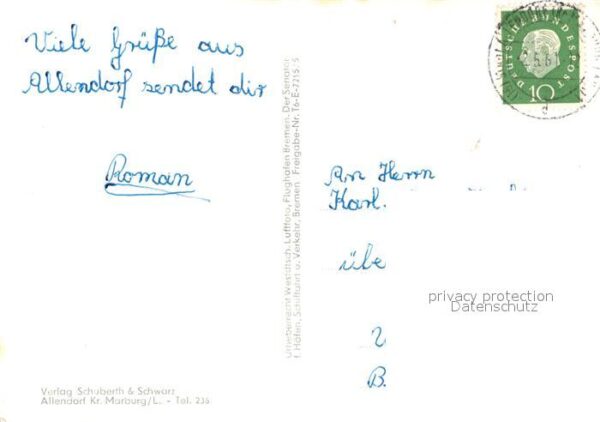 Viele Grüße aus
Allendorf sendet dir
Roman
Verlag Schuberth & Schwarz
Allendorf Kr. Marburg/L. - Tel. 236
Urheberrecht Westdtsch. Luftfoto, Flughafen Bremen. Der Senator
f. Häfen, Schiffahrt u. Verkehr, Bremen Freigabe-Nr. T6-E-7215
DEUTSCHE BUNDESPOST
10
An Herrn
Karl.
übe
2
B.
privacy protection
Datenschutz